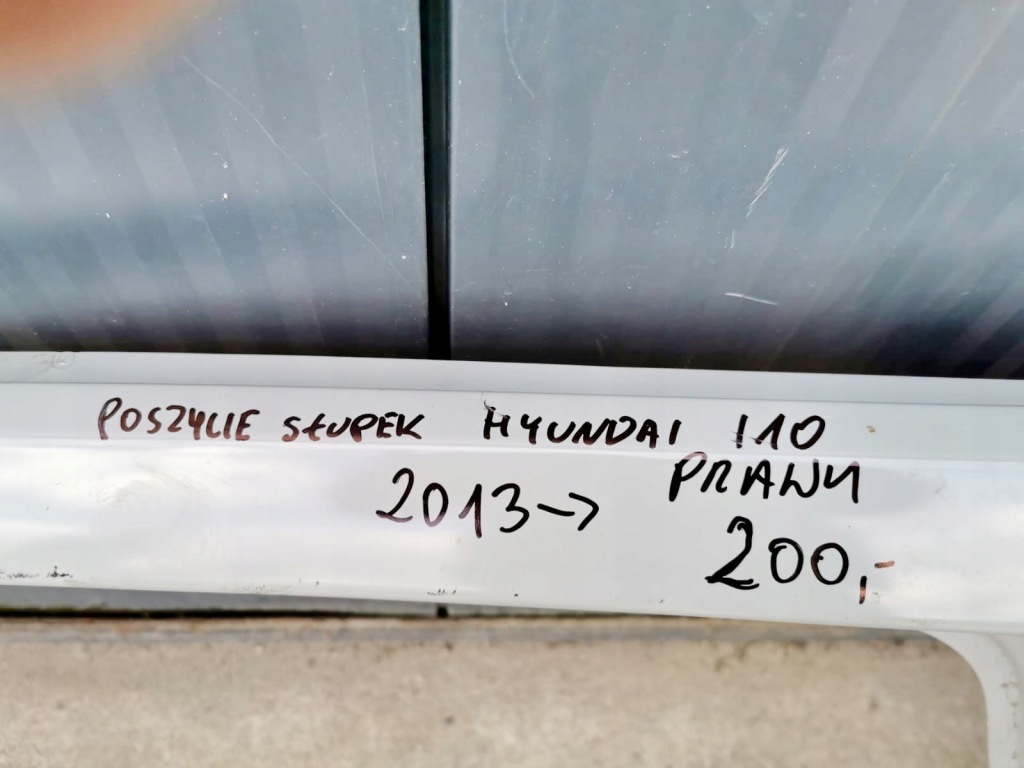 POSZYCIE SŁUPEK HYUNDAI I10
PRAWY
2013->
200,-